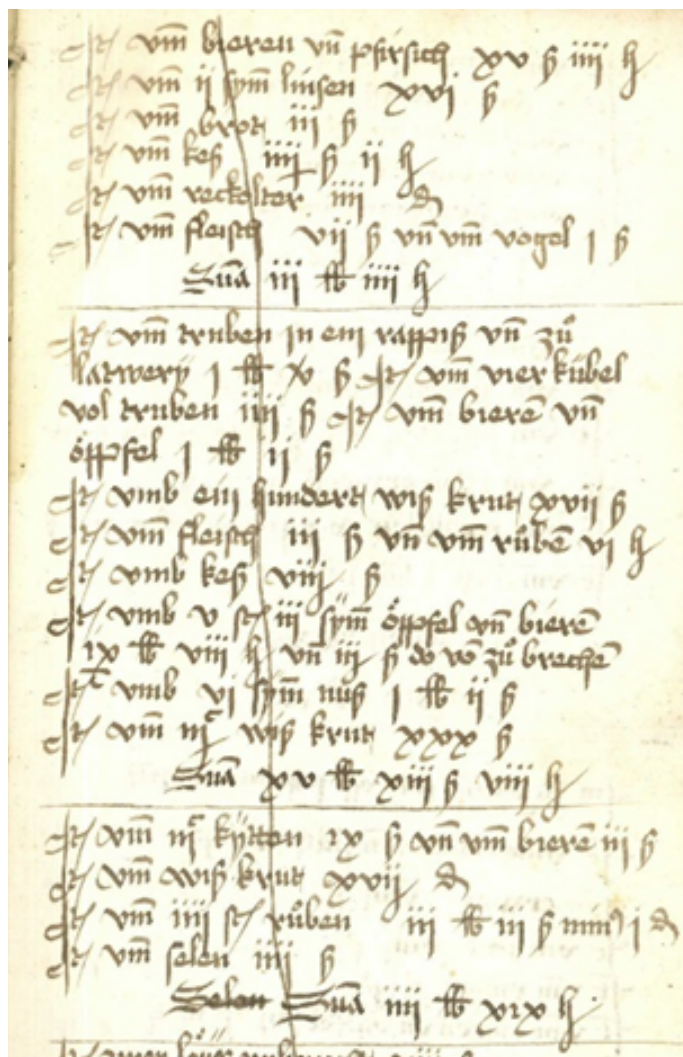 It vm̄ bieren vn̄ pfirsich xv ß iiii h
It vm̄ ii sym̄ linsen xvi ß
It vm̄ brot iii ß
It vm̄ keß iiii ß ii h
It vm̄ reckolter iiii d
It vm̄ fleisch vii ß vn̄ vm̄ vogel i ß
Sum̄a iii lb iiii h
It vm̄ truben in ein rappiß vn̄ zů
latwery i lb v ß It vm̄ vier kübel
vol truben iiii ß It vm̄ bierē vn̄
öppfel i lb ii ß
It vmb ein hundert wiß krut xvii ß
It vm̄ fleisch iii ß vn̄ vm̄ růbē vi h
It vmb keß viii ß
It vmb v st iii sym̄ öppfel vn̄ bierē
ix lb viii h vn̄ iii ß do vō zů brechē
It vmb vi sym̄ nuß i lb ii ß
It vm̄ wiß krut xxx ß
Sum̄a xv lb xiii ß viii h
It vm̄ kytten ix ß vn̄ vm̄ bierē iii ß
It vm̄ wiß krut xvii d
It vm̄ iiii st růben iii lb iii ß min9 i d
It vm̄ selen iiii ß
Selen Sum̄a iiii lb xix h